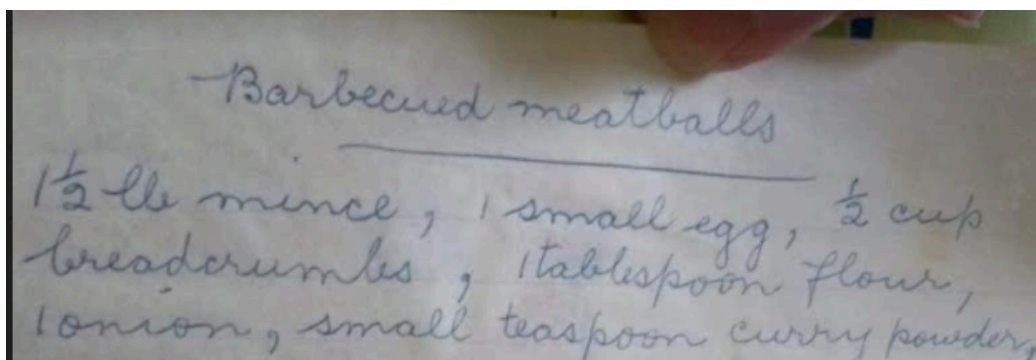 Barbecued meatballs
1½ lb mince, 1 small egg, ½ cup
breadcrumbs, 1 tablespoon flour,
1 onion, small teaspoon curry powder,